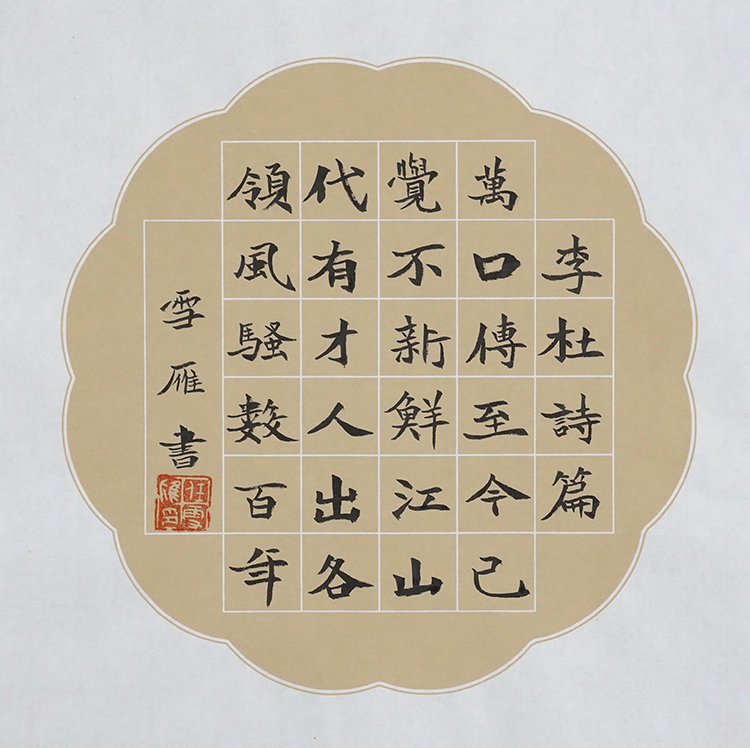 李杜詩篇
萬口傳至今已
覺不新鮮江山
代有才人出各
領風騷數百年
雪雁書
雪雁印